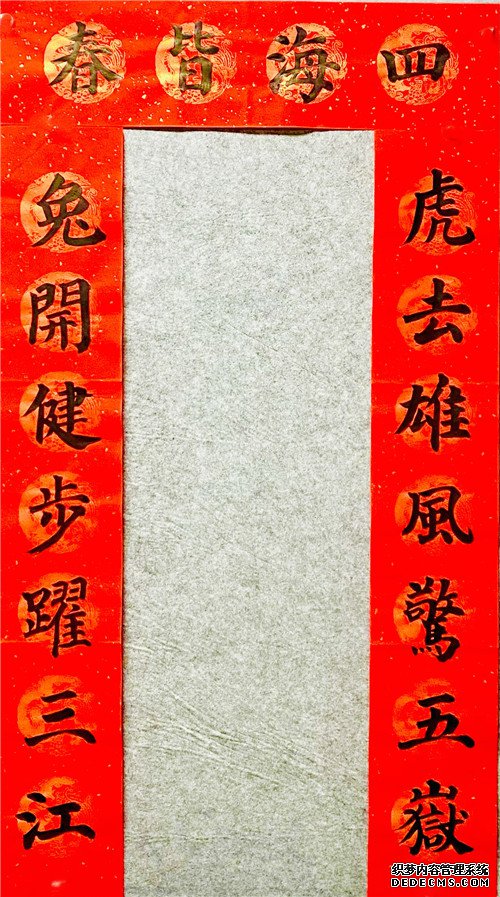 四海皆春
虎去雄風驚五嶽
兔開健步躍三江
织梦内容管理系统
DEDECMS.COM